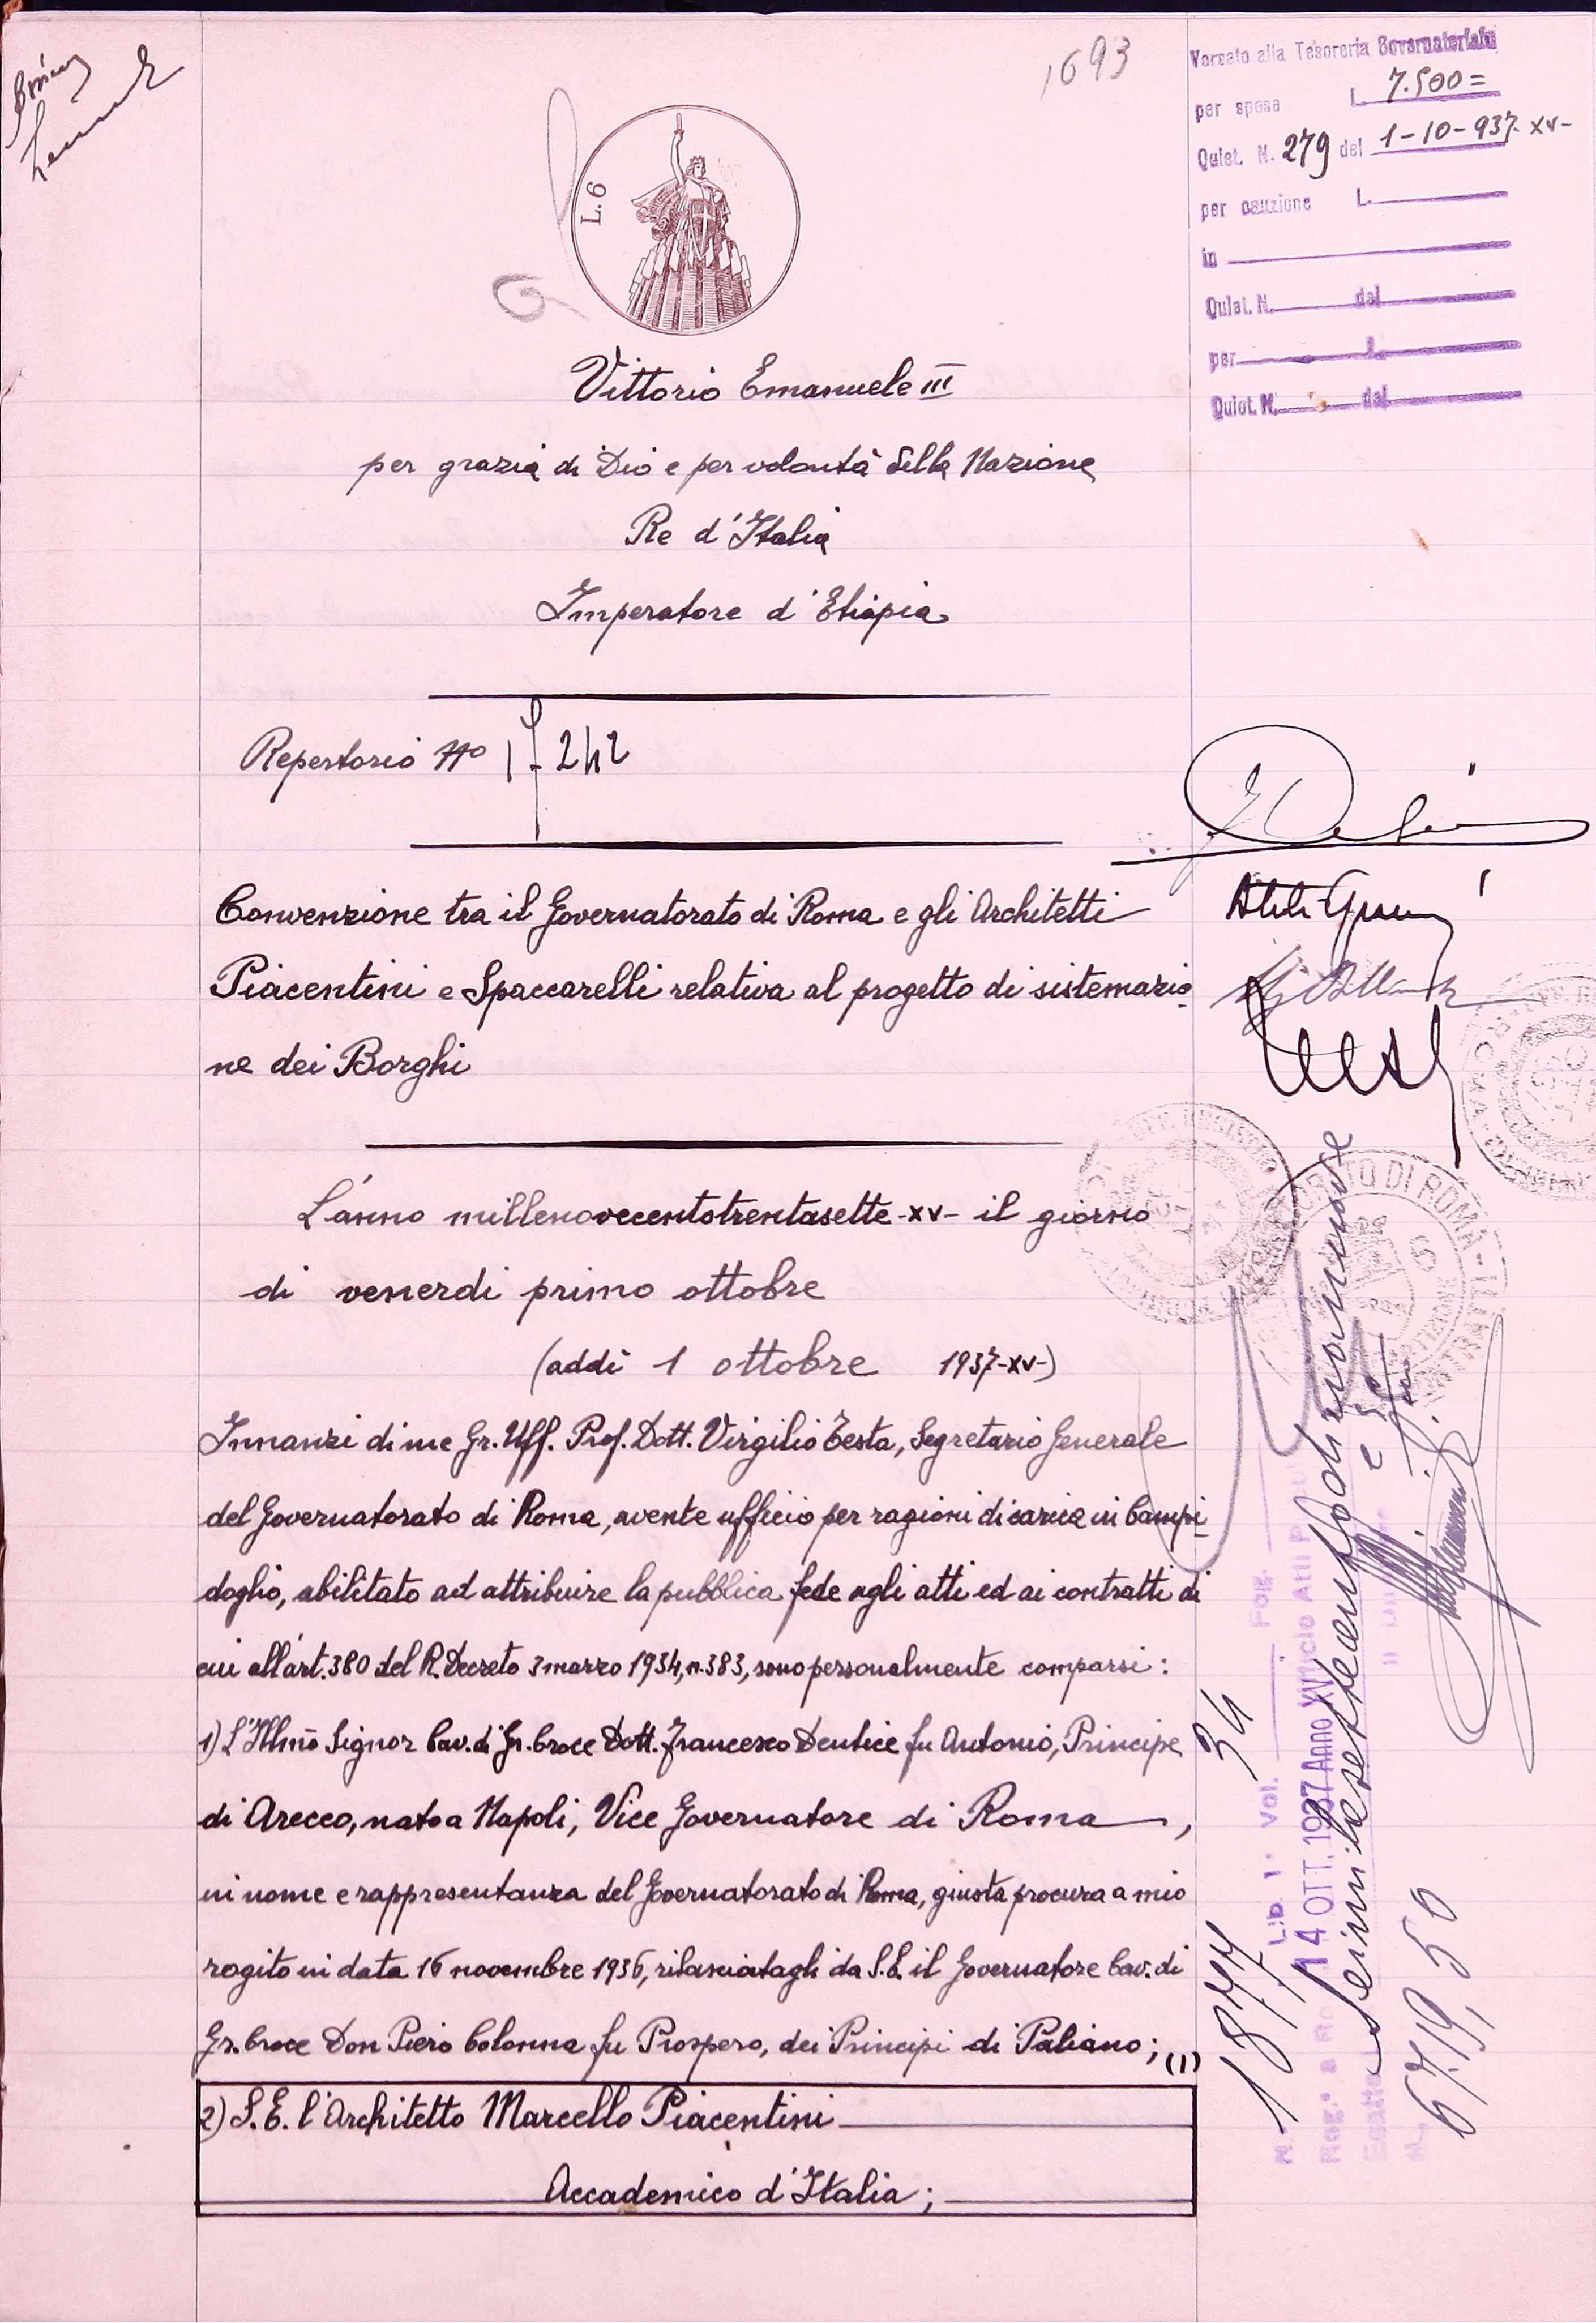 1693
Versato alla Tesoreria Governatoriale
per spese L. 7.500=
Quiet. N. 279 del 1-10-937-XV-
per cauzione L.
in
Quiet. N. del
per L.
Quiet. N. del
L.6
Vittorio Emanuele III
per grazia di Dio e per volontà della Nazione
Re d'Italia
Imperatore d'Etiopia
Repertorio No
Convenzione tra il Governatorato di Roma e gli Architetti
Piacentini e Spaccarelli relativa al progetto di sistemazio
ne dei Borghi
L'anno millenovecentotrentasette-XV- il giorno
di venerdi primo ottobre
(addì 1 ottobre 1937-XV-)
Innanzi di me Gr. Uff. Prof. Dott. Virgilio Testa, Segretario Generale
del Governatorato di Roma, avente ufficio per ragioni di carica in Campi
doglio, abilitato ad attribuire la pubblica fede agli atti ed ai contratti di
cui all'art. 380 del R. Decreto 3 marzo 1934, n. 383, sono personalmente comparsi:
1) L'Illmo Signor Cav. di Gr. Croce Dott. Francesco Dentice fu Antonio, Principe
di Arecco, nato a Napoli, Vice Governatore di Roma,
in nome e rappresentanza del Governatorato di Roma, giusta procura a mio
rogito in data 16 novembre 1936, rilasciatagli da S.E. il Governatore Cav. di
Gr. Croce Don Piero Colonna fu Prospero, dei Principi di Paliano; (1)
2) S.E. l'Architetto Marcello Piacentini
Accademico d'Italia;
N. 1877 Lib. 1° Vol. 34 Fog.
14 OTT. 1937 Anno XV
Seimilasettecentodiciannove
6719,50